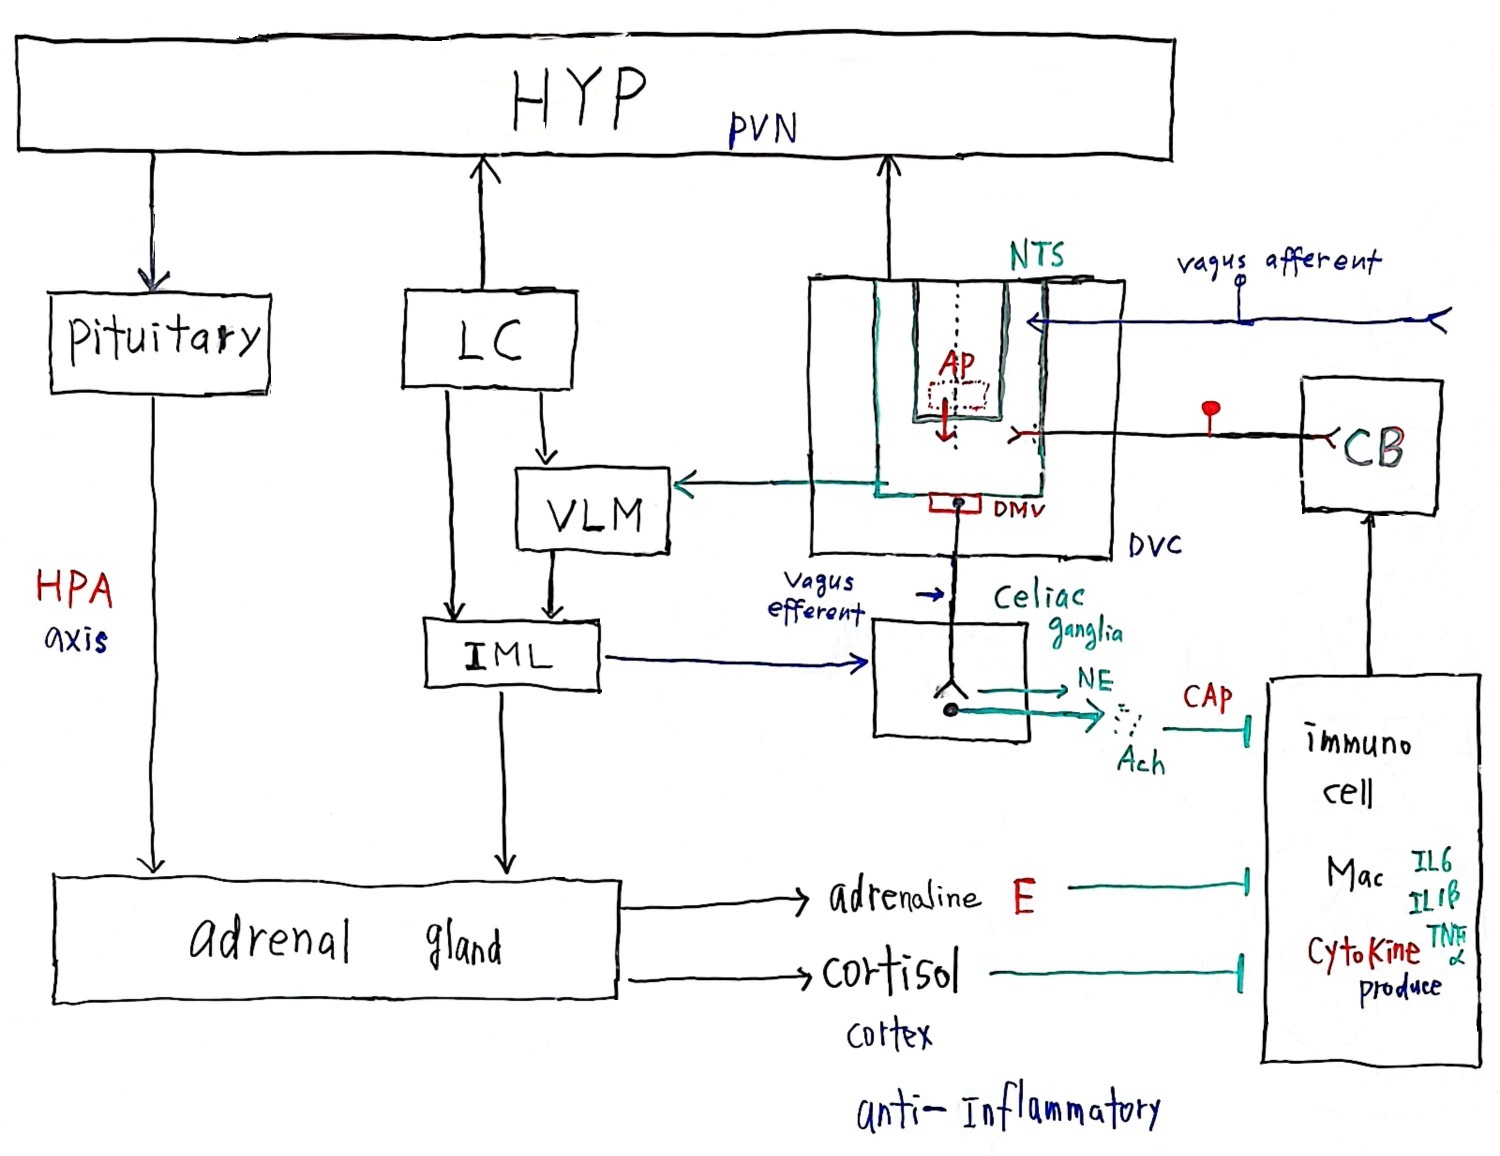 HYP
PVN
NTS
vagus afferent
Pituitary
LC
AP
CB
VLM
DMV
DVC
HPA
axis
Vagus
efferent
Celiac
ganglia
IML
NE
CAP
Ach
immuno
cell
Mac
IL6
IL1β
TNF
α
Cytokine
produce
adrenal gland
adrenaline E
cortisol
cortex
anti-Inflammatory